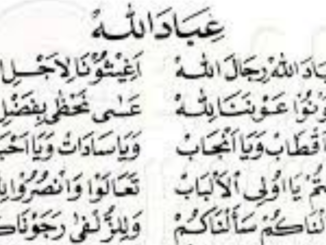 عِبَادَ اللهْ
بَادَ اللهْ رِجَالَ اللهْ اَغِيْثُوْنَا لِاَجْلِ ا
وْنُوْا عَوْنَنَا لِلّٰهْ عَسٰى نَحْظٰى بِفَضْلِ
اَقْطَابْ وَيَا اَنْجَابْ وَيَا سَادَاتْ وَيَا اَحْبَ
ـتُمْ يَا اُولِى الْاَلْبَابْ تَعَالَوْا وَانْصُرُوْا لِلّٰ
لْنَاكُمْ سَأَلْنَاكُمْ وَلِلزُّلْفٰى رَجَوْنَاكُ